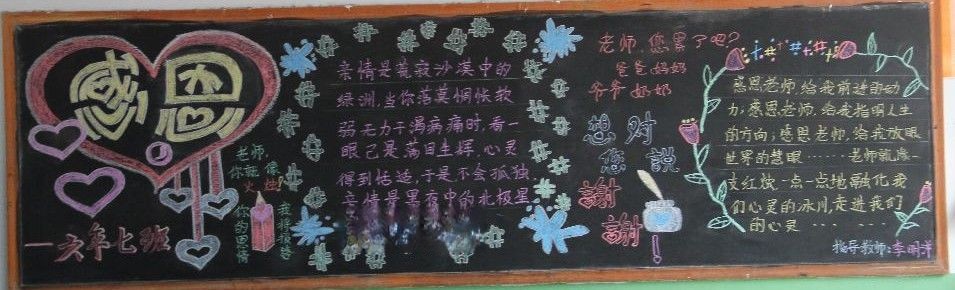 感恩
老师,
你就像
火炬!
你的恩情
我将报答
一六年七班
亲情是荒寂沙漠中的
绿洲,当你落莫惆怅软
弱无力干渴病痛时,看一
眼已是满目生辉,心灵
得到恬适,于是不会孤独
亲情是黑夜中的北极星
老师,您累了吧?
爸爸妈妈
爷爷奶奶
想对
您说
謝
謝
感恩老师,给我前进的动
力;感恩老师,给我指明人生
的方向;感恩老师,给我放眼
世界的慧眼……老师就像一
支红烛一点一点地融化我
们心灵的冰川,走进我们
的心灵……
指导教师:李明洋